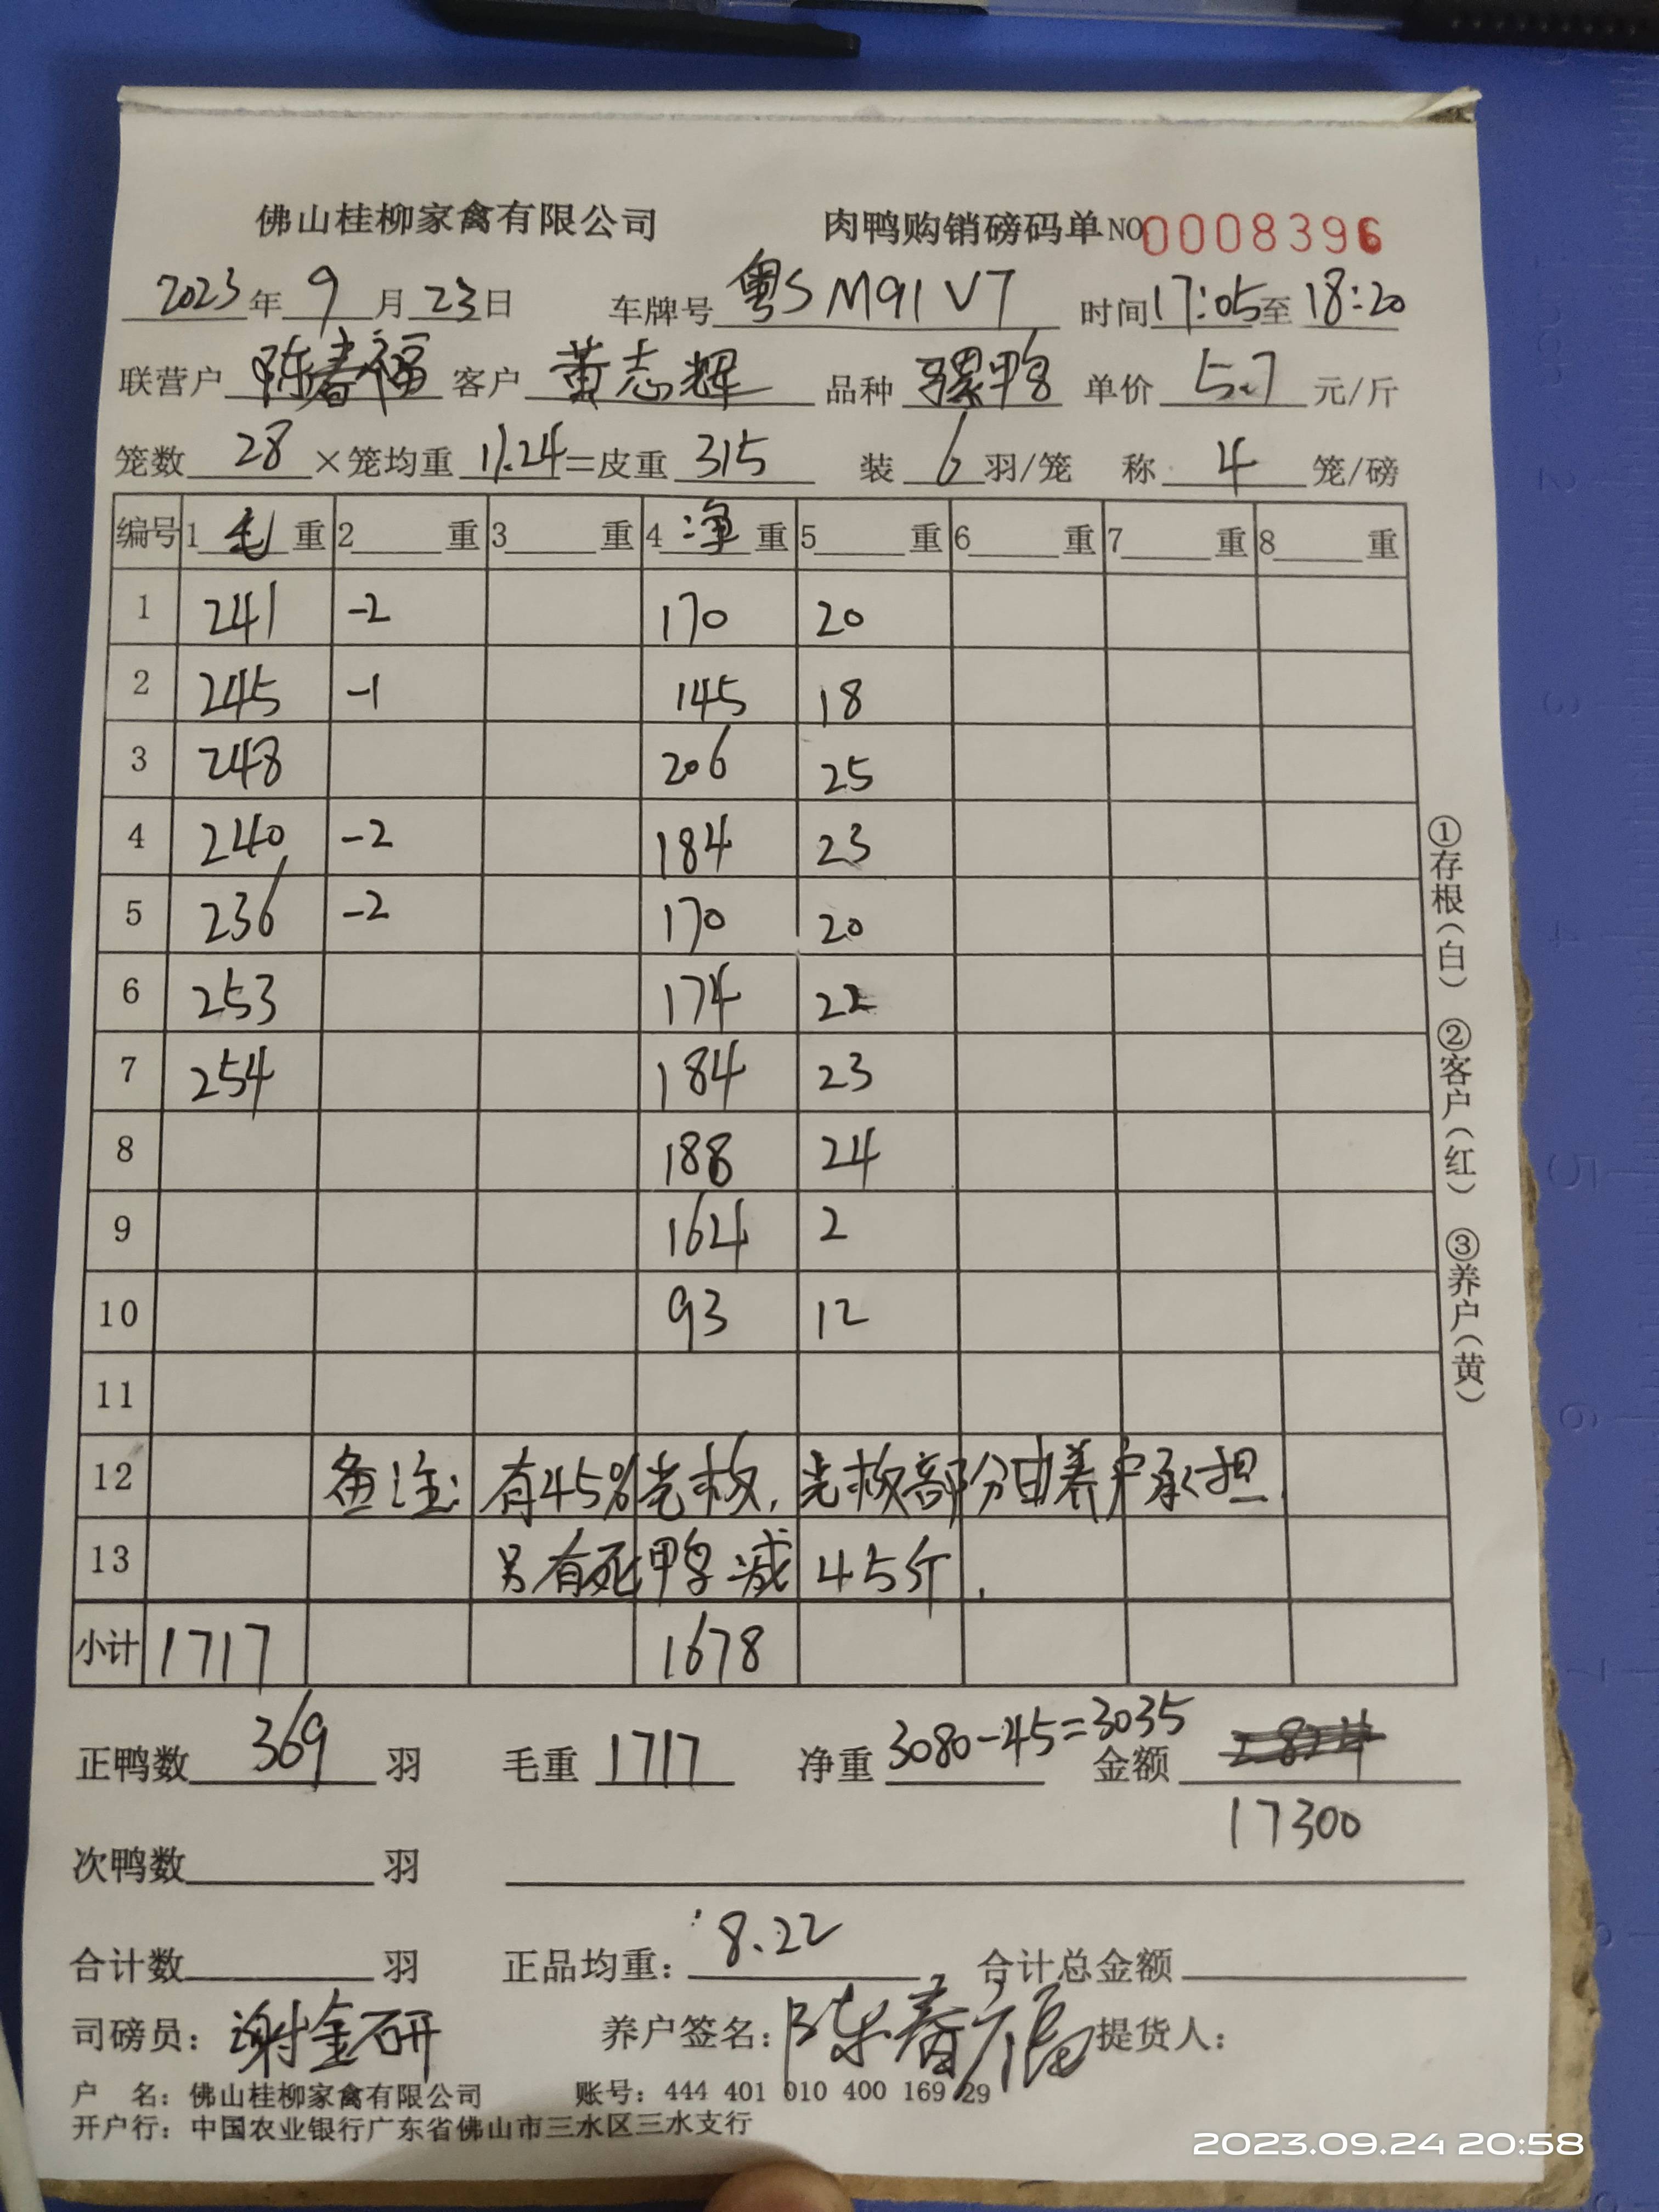 佛山桂柳家禽有限公司 肉鸭购销磅码单 NO 0008396
2023年9月23日 车牌号 粤S M91V7 时间17:05至18:20
联营户 陈春福 客户 黄志辉 品种 骡鸭 单价 5.7 元/斤
笼数 28 ×笼均重 11.24=皮重 315 装 6 羽/笼 称 4 笼/磅
编号 1 毛 重 2 重 3 重 4 净 重 5 重 6 重 7 重 8 重
1 241 -2 170 20
2 245 -1 145 18
3 248 206 25
4 240 -2 184 23
5 236 -2 170 20
6 253 174 22
7 254 184 23
8 188 24
9 164 2
10 93 12
11
12 备注: 有45%光板, 光板部分由养户承担.
13 另有死鸭减45斤.
小计 1717 1678
正鸭数 369 羽 毛重 1717 净重 3080-45=3035 金额
17300
次鸭数 羽
合计数 羽 正品均重: 8.22 合计总金额
司磅员: 谢金研 养户签名: 陈春福 提货人:
户 名: 佛山桂柳家禽有限公司 账号: 444 401 010 400 169 29
开户行: 中国农业银行广东省佛山市三水区三水支行
①存根(白) ②客户(红) ③养户(黄)
2023.09.24 20:58